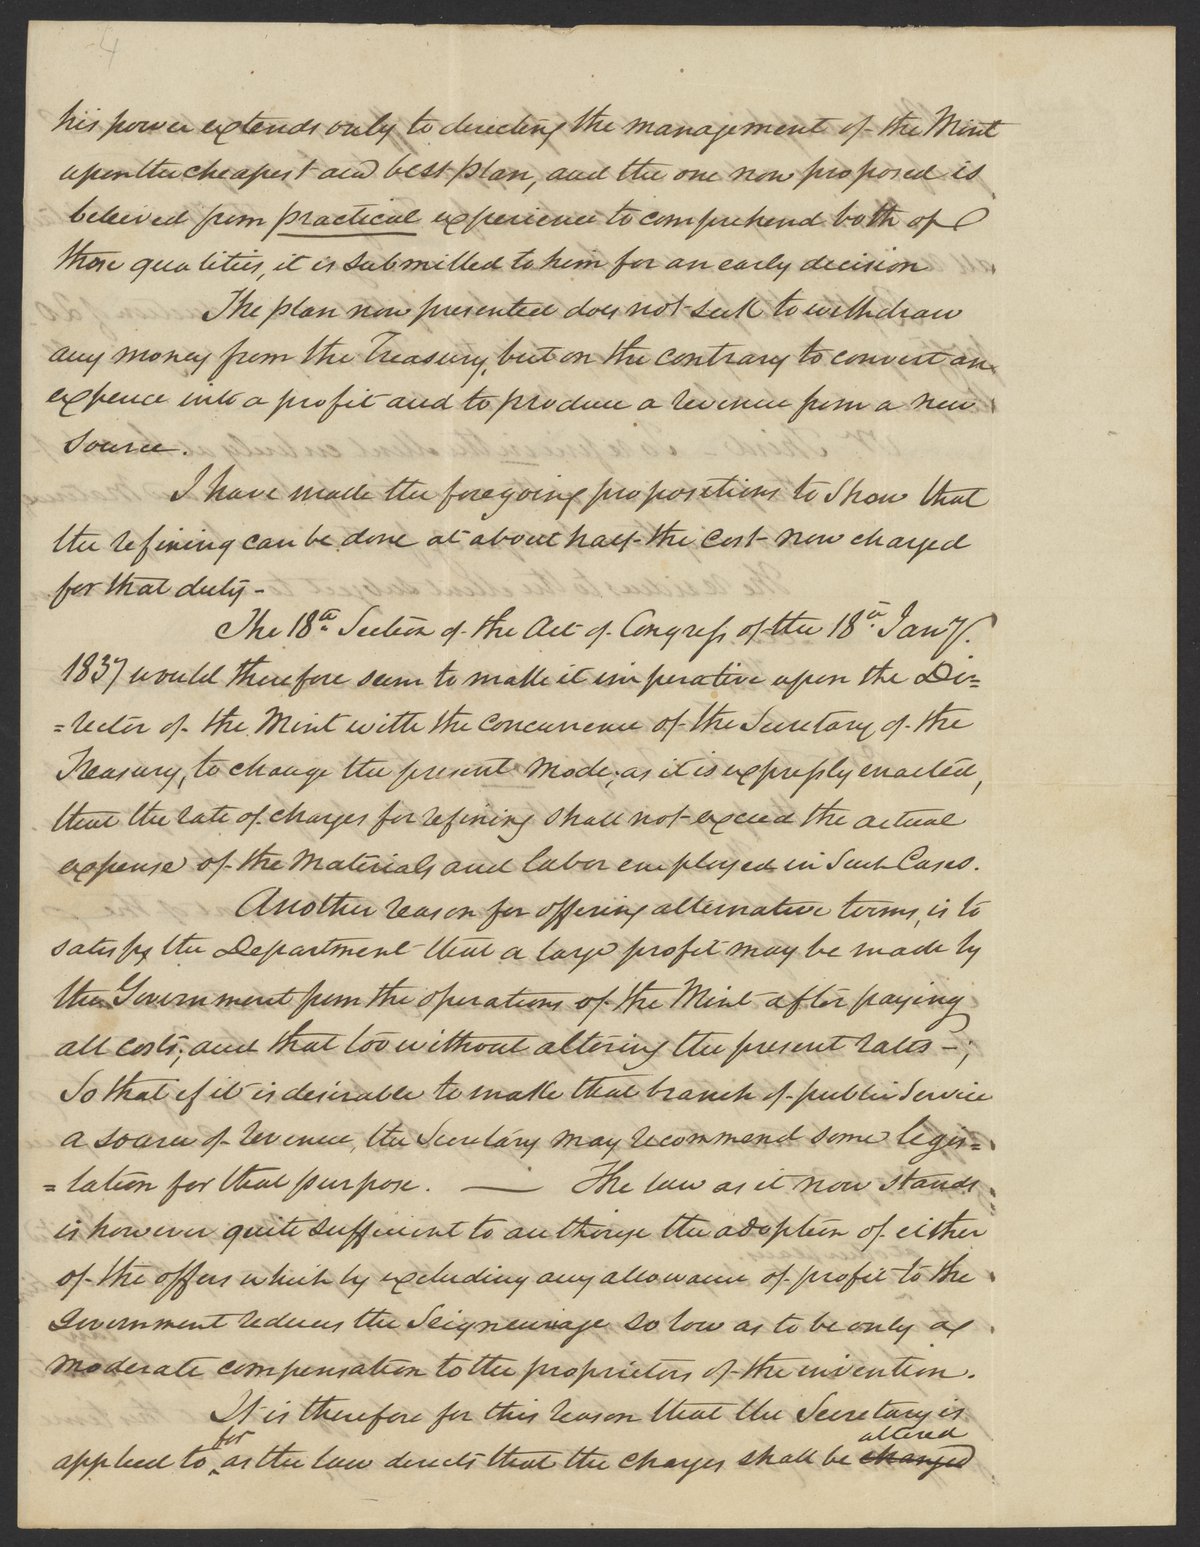 4
his power extends only to directing the management of the Mint
upon the cheapest and best plan, and the one now proposed is
believed from practical experience to comprehend both of
those qualities, it is submitted to him for an early decision
The plan now presented does not seek to withdraw
any money from the Treasury, but on the contrary to convert an
expence into a profit and to produce a revenue from a new
source.
I have made the foregoing propositions to show that
the refining can be done at about half the cost now charged
for that duty -
The 18th Section of the Act of Congress of the 18th Jany.
1837 would therefore seem to make it imperative upon the Di=
=rector of the Mint with the concurrence of the Secretary of the
Treasury, to change the present mode, as it is expressly enacted,
that the rate of charges for refining shall not exceed the actual
expense of the Materials and labor employed in Such Cases.
Another reason for offering alternative terms, is to
satisfy the Department that a large profit may be made by
the Government from the operations of the Mint after paying
all costs, and that too without altering the present rates -;
So that if it is desirable to make that branch of public Service
a source of revenue, the Secretary may recommend some legis=
=lation for that purpose. — The law as it now stands
is however quite sufficient to authorise the adoption of either
of the offers which by excluding any allowance of profit to the
Government reduces the Seigneurage so low as to be only a
moderate compensation to the proprietors of the invention.
It is therefore for this reason that the Secretary is
for altered
applied to ‸ as the law directs that the charges shall be changed